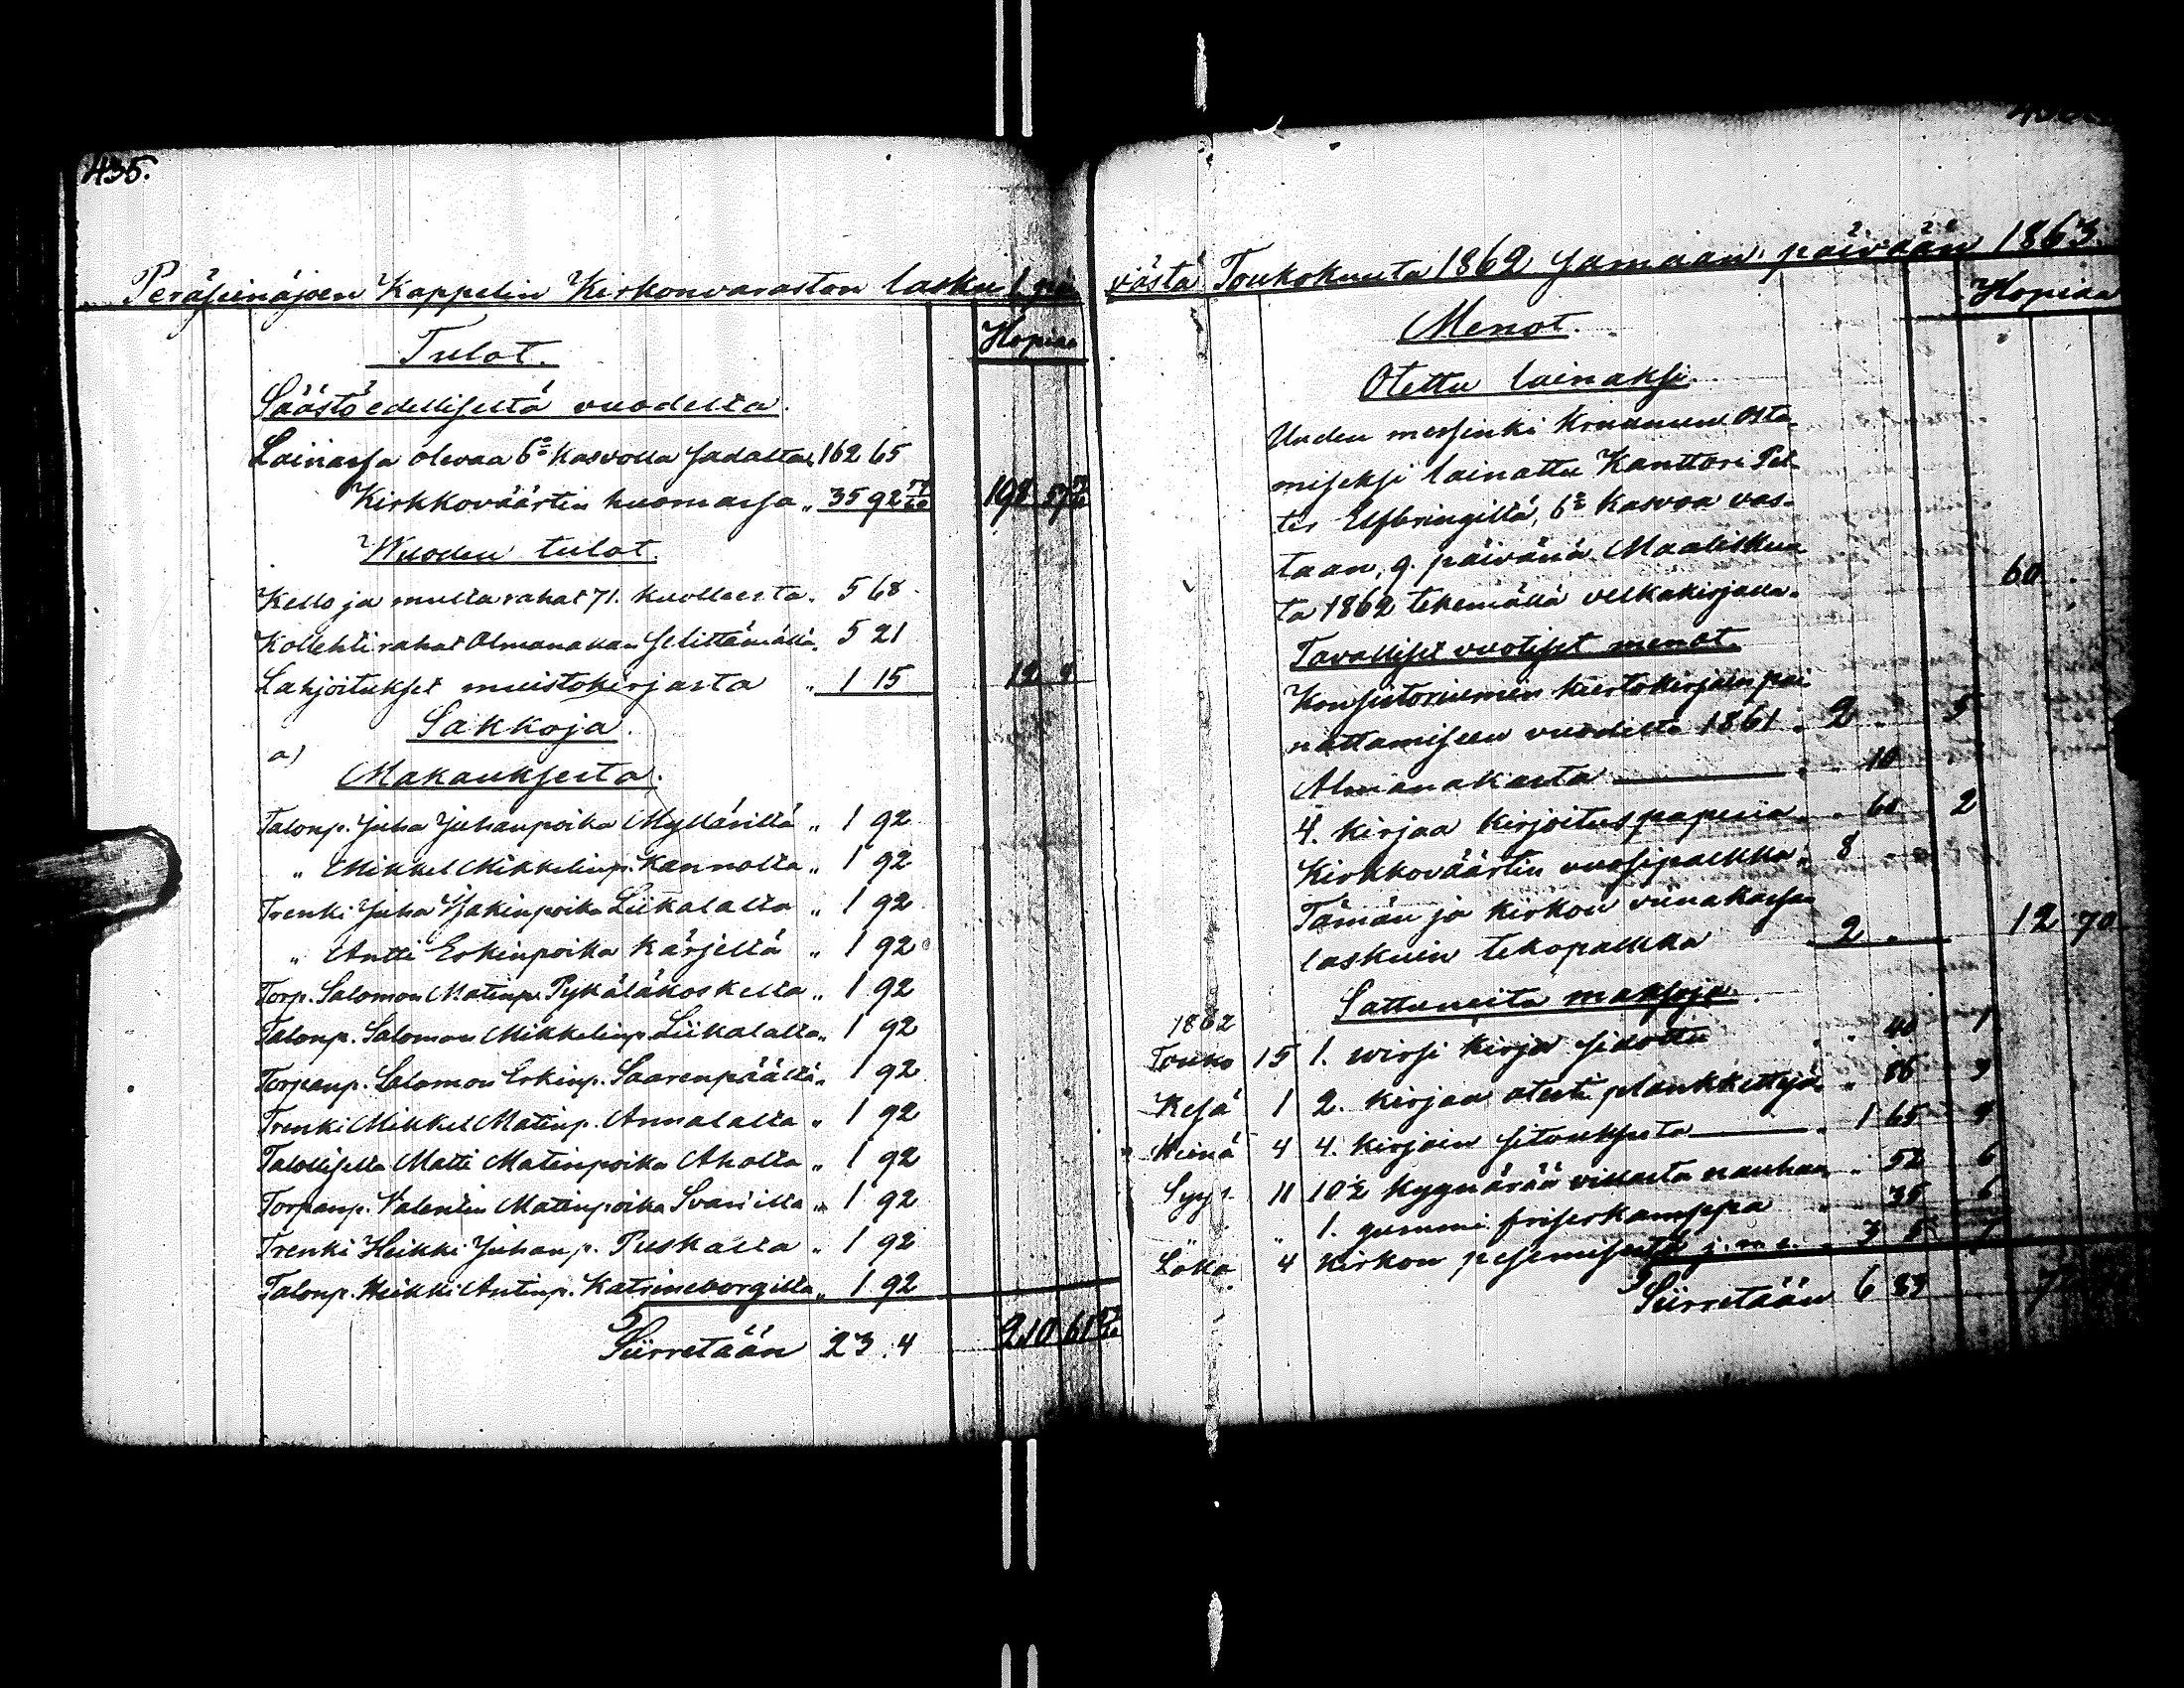 435.
Peräseinäjoen Kappelin Kirkonvaraston lasku 1 päi
Hopiaa
Tulot.
Säästö edelliseltä vuodelta.
Lainassa olevaa 6% kasvolla sadalta 162 65
Kirkkoväärtin huomassa „ 35 92 198 57
Wuoden tulot.
Kello ja multa rahat 71. kuolleesta „ 5 68
Kollehti rahat Almanakan selittämällä „ 5 21
Lahjoitukset muistokirjasta „ 1 15 12 4
Sakkoja.
a)
Makauksesta.
Talonp. Juha Juhanpoika Mylläriltä „ 1 92
„ Mikkel Mikkelinp. Kannolta „ 1 92
Trenki Juha Isakinpoika Liikalalta „ 1 92
„ Antti Erkinpoika Kärjeltä „ 1 92
Torp. Salomon Matinp. Pykäläkoskelta „ 1 92
Talonp. Salomon Mikkelinp. Liikalalta „ 1 92
Torpanp. Salomon Erkinp. Saarenpäältä „ 1 92
Trenki Mikkel Matinp. Annalalta „ 1 92
Talollisella Matti Matinpoika Aholta „ 1 92
Torpanp. Valentin Matinpoika Svariilta „ 1 92
Trenki Heikki Juhanp. Puskalta „ 1 92
Talonp. Heikki Antinp. Katrineborgilta „ 1 92
Siirretään 23. 4 210 61
västä Toukokuuta 1862 samaan päivään 1863.
Hopiaa
Menot.
Otettu lainaksi.
Uuden messinki Kruunun osta-
miseksi lainattu Kanttori Pet-
ter Elfbringiltä, 6% kasvoa vas-
taan, 9. päivänä Maaliskuu-
ta 1862 tekemällä velkakirjalla. 60
Tavalliset vuotiset menot.
Konsistoriumin kiertokirjain pai-
nattamiseen vuodelta 1861 „ 2 „ 5
Almanakasta „ „ 10
4. kirjaa kirjoituspaperia „ „ 60 2
Kirkkoväärtin vuosipalkka „ 8 „
Tämän ja kirkon viinakassan
laskuin tekopalkka 2 „ 12 70
Sattuneita maksoja.
1862
Touko 15 1. wirsi kirja sidottu „ 40 1
Kesä 1 2. kirjaa atesti plankkettejä „ 86 3
Heinä 4 4. kirjain sitouksesta „ 1 65 4
Syys 11 10½ kyynärää villasta nauhaa „ 52 6
„ „ 1. gummi friserkamppa „ 35 6
Loka 4 Kirkon pesemisestä j. n. e. „ 3 5 7
Siirretään 6 83